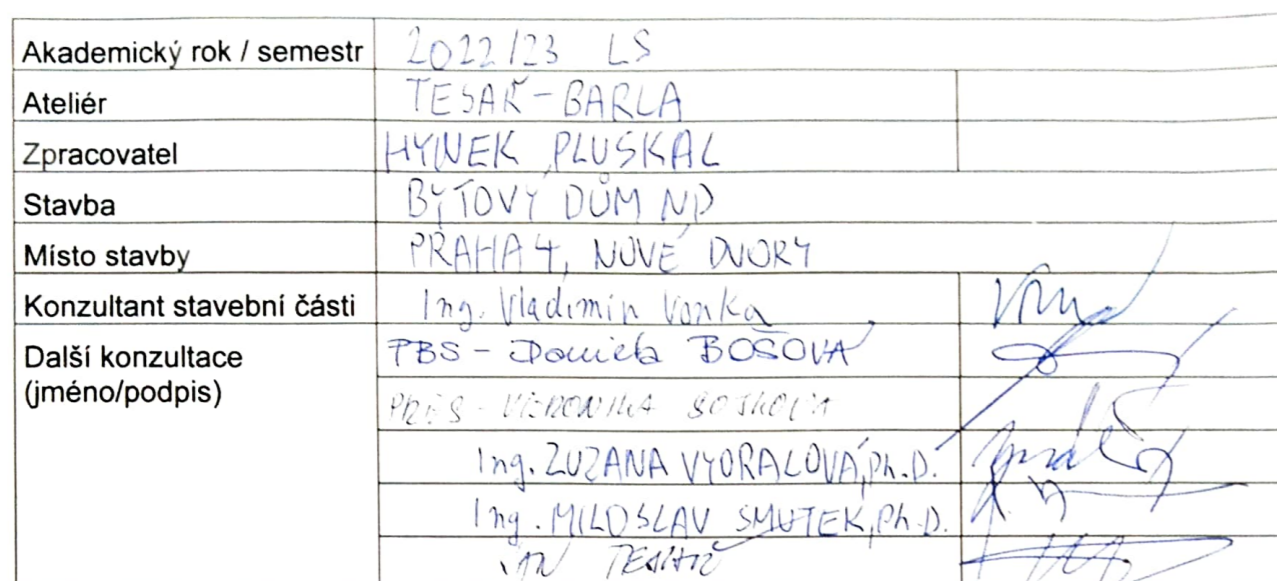 Akademický rok / semestr 2022/23 LS
Ateliér TESAŘ-BARLA
Zpracovatel HYNEK PLUSKAL
Stavba BYTOVÝ DŮM ND
Místo stavby PRAHA 4, NOVÉ DVORY
Konzultant stavební části Ing. Vladimír Vonka
Další konzultace PBS - Daniela BOŠOVÁ
(jméno/podpis)
PRES - VERONIKA SOJKOVÁ
Ing. ZUZANA VYORALOVÁ, Ph.D.
Ing. MILOSLAV SMUTEK, Ph.D.
JAN TESAŘ